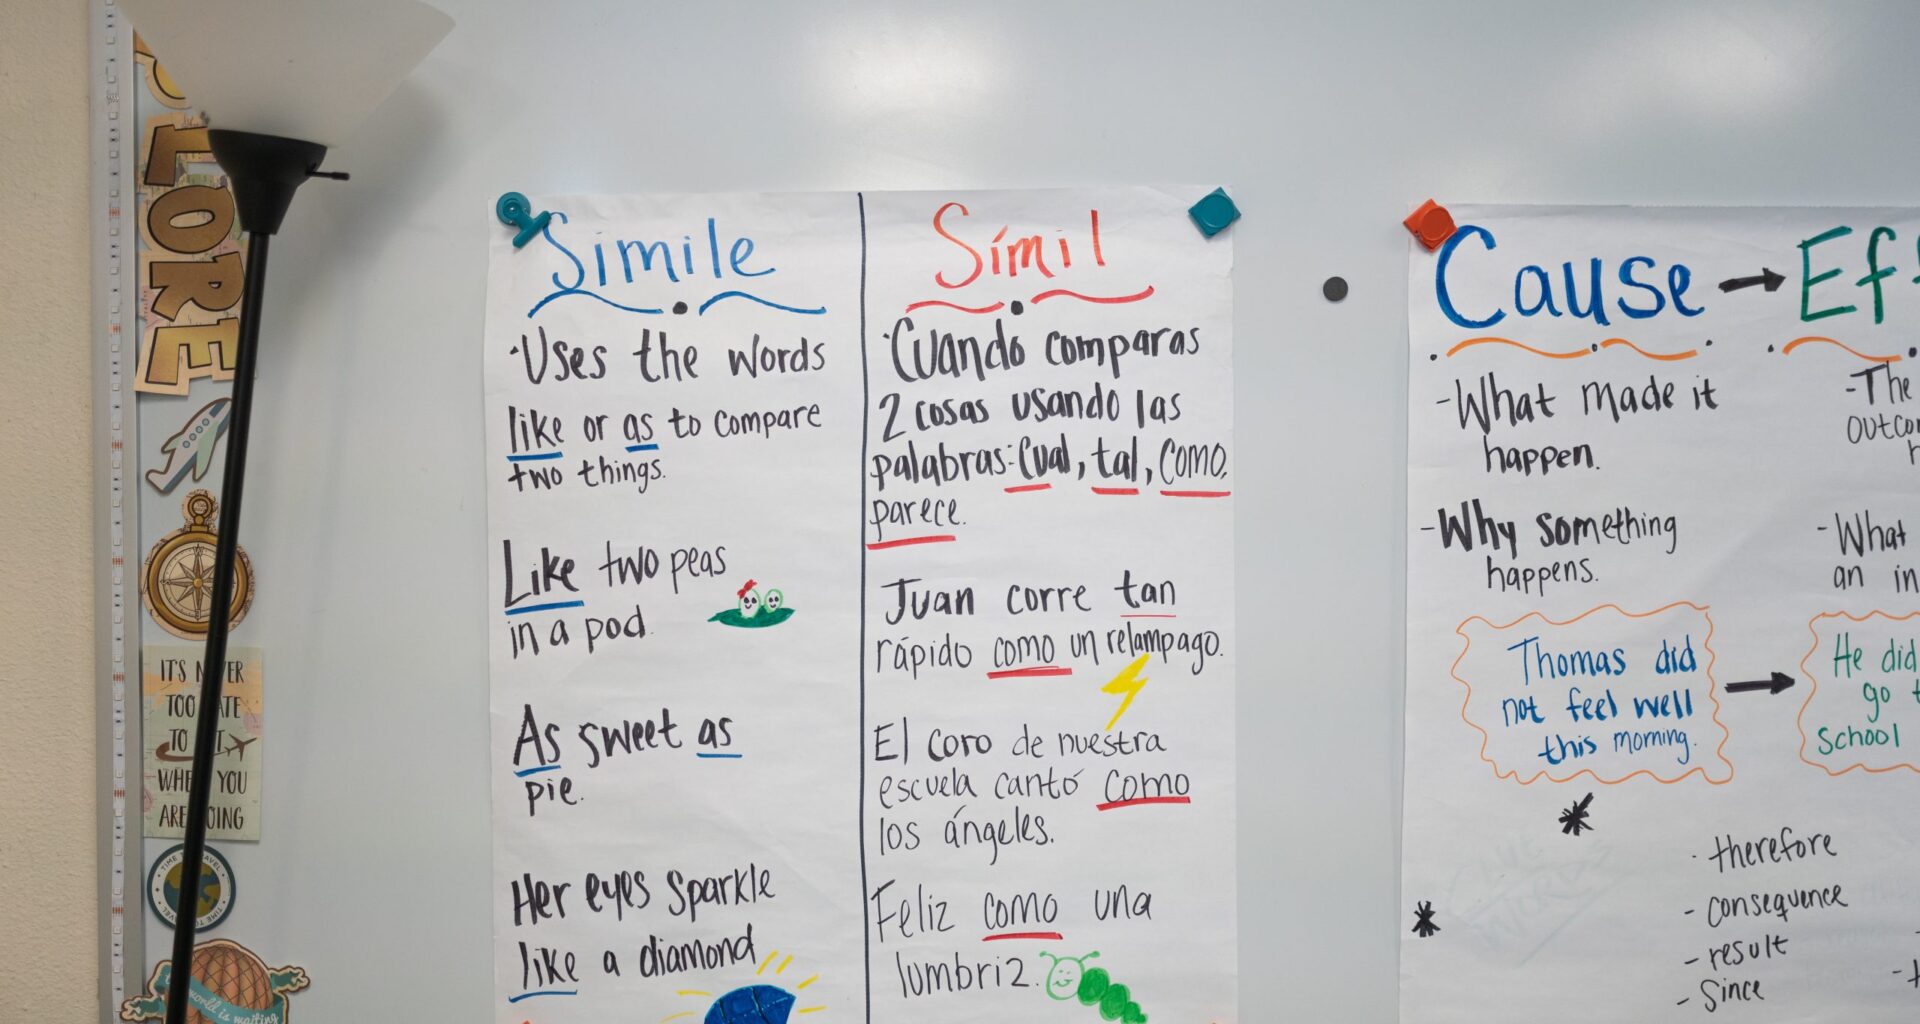 LORE
IT'S NEVER
TOO LATE
TO
WHEN YOU
ARE GOING
TIME TO TRAVEL
world is waiting
Simile
·Uses the words
like or as to compare
two things.
Like two peas
in a pod.
As sweet as
pie.
Her eyes sparkle
like a diamond
Símil
·Cuando comparas
2 cosas usando las
palabras: Cual, tal, como,
parece.
Juan corre tan
rápido como un relampago.
El coro de nuestra
escuela cantó como
los ángeles.
Feliz como una
lumbriz.
Cause → Eff
-What made it
happen.
-Why something
happens.
Thomas did
not feel well
this morning.
· therefore
- consequence
- result
- Since
-The
outco
-What
an in
He did
go t
School